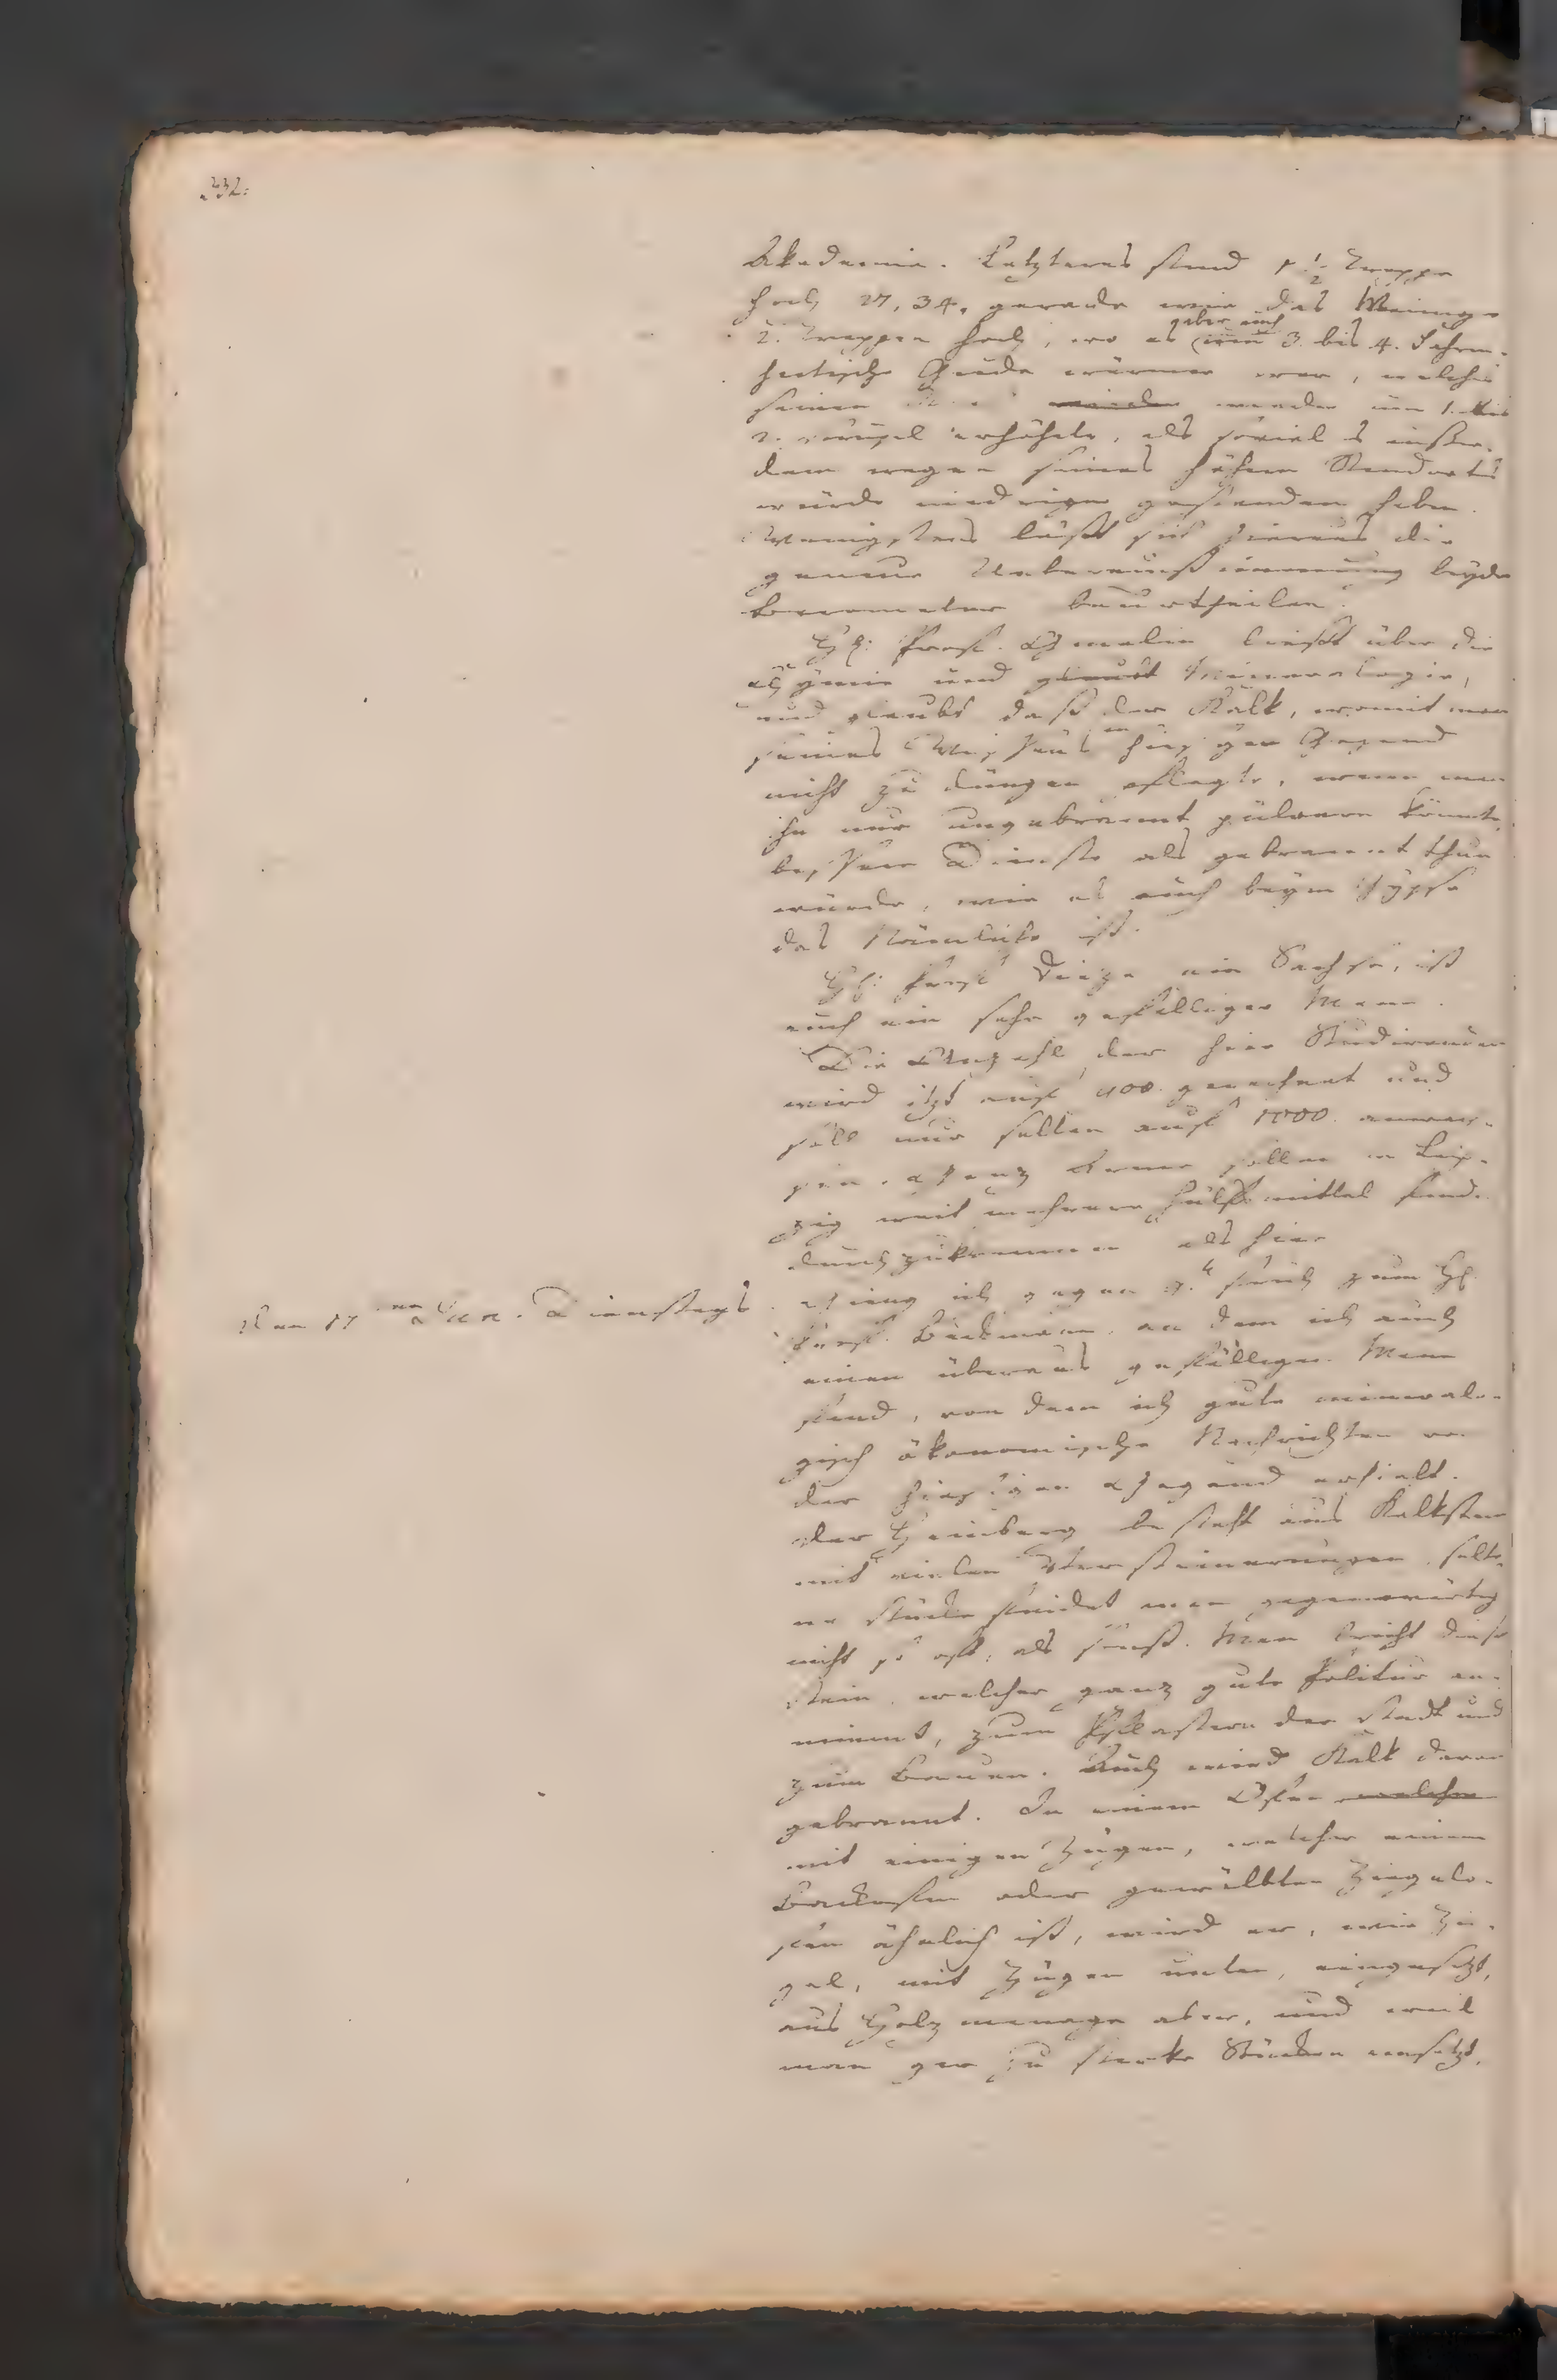 332.
Akademie. Letzteres stund 1 1/2 Treppe
hoch 27,34, gerade wie das Meinige
2. Treppen hoch, wo es aber auch um 3. bis 4. Fahren-
heitische Grade wärmer war, welches
seinen wieder um 1. bis
2. erhöhete, als soviel es ausser-
dem wegen seines höhern Standorts
würde niedriger gestanden haben.
Wenigstens läßt sich hieraus die
genaue Uebereinstimmung beyder
Barometer beurtheilen.
Hr: Prof. Gmelin ließt über die
Chymie und Mineralogie,
und glaubt daß der Kalk, womit man
seines Wissens in hiesiger Gegend
nicht zu düngen pflegte, wenn man
ihn nur ungebrannt pülvern könnte,
bessere Dienste als gebrannt thun
würde, wie es auch beym Gypse
das Nämliche ist.
Hr: Prof. Dieze ein Sachse, ist
auch ein sehr gefälliger Mann.
Die Anzahl der hier Studirenden
wird itzt auf 900. gerechnet und
soll nur selten auf 1000. anwach-
sen. Ganz Arme sollen in Leip-
zig weit mehrere Hülfsmittel finden
durchzukommen als hier
Den 17ten Dienstags. Gieng ich gegen 9. früh zum Hr.
Prof. Beckmann, an dem ich auch
einen überaus gefälligen Mann
fand, von dem ich gute mineralo-
gisch ökonomische Nachrichten von
der hiesigen Gegend erhielt.
Der Heinberg besteht aus Kalkstein
mit vielen Versteinerungen, selte-
ne Stücke findet man gegenwärtig
nicht so oft, als sonst. Man bricht diesen
Stein, welcher ganz gute Politur an-
nimmt, zum Pflastern der Stadt und
zum Bauen. Auch wird Kalk daraus
gebrannt. In einem Ofen welcher
mit einigen Zügen, welcher einem
Backofen oder gewölbten Ziegelo-
fen ähnlich ist, wird er, wie Zie-
gel, mit Zügen unten, eingesetzt,
aus Holzmangel aber, und weil
man gar zu starke Stücken einsetzt,